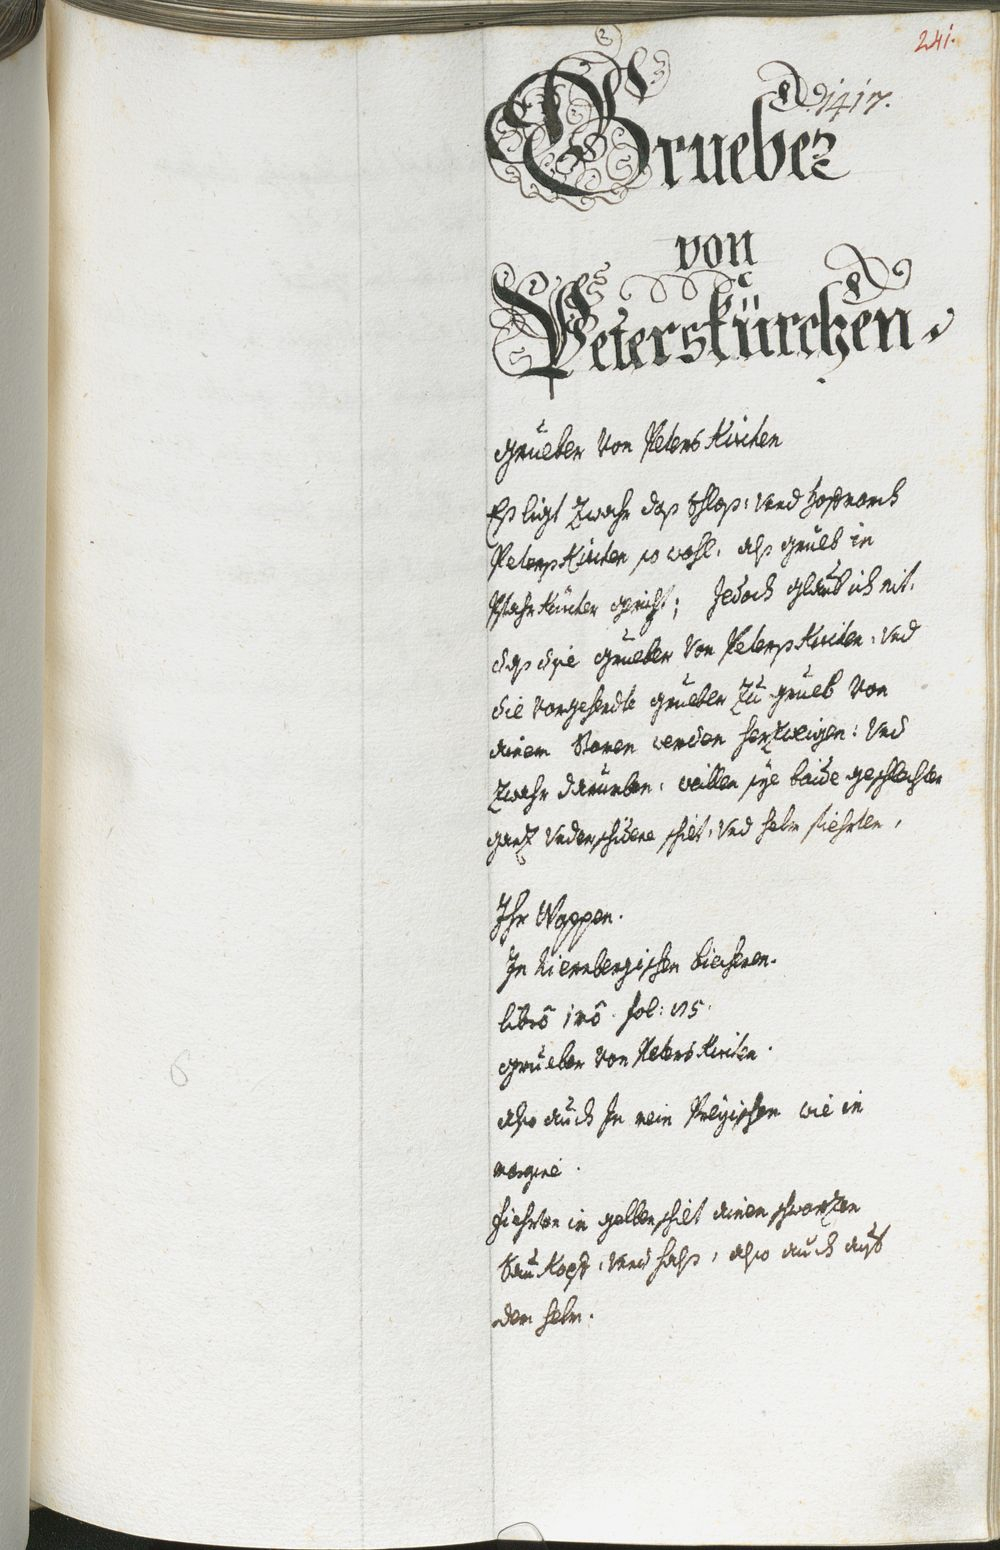 241.
1417.
Grueber
von
Peterskürchen.
Grueber von Peters Kirchen
Eß ligt Zwahr daß Schloß: Vnd Hofmarch
Peterß Kirchen so wohl, alß Grueb in
Pfahr Kircher gericht; Jedoch glaub ich nit,
daß die Grueber Von Peterß Kirchen, Vnd
die Vorgehendte Grueber Zu Grueb Von
ainem Stamen werden herZweigen: Vnd
Zwahr darumben, weillen sye baide geschlechter
ganZ Vnderschidene schilt, Vnd helm fiehrten,
Ihr Wappen.
In Niernbergischen biechern.
libro imo. fol: 95.
Grueber Von Peters Kirchen.
also auch In mein Preyischen wie in
margine.
Fiehrten in gelben schilt ainen schwarZen
Sau Kopf, Vnd halß, also auch auf
dem helm.
6